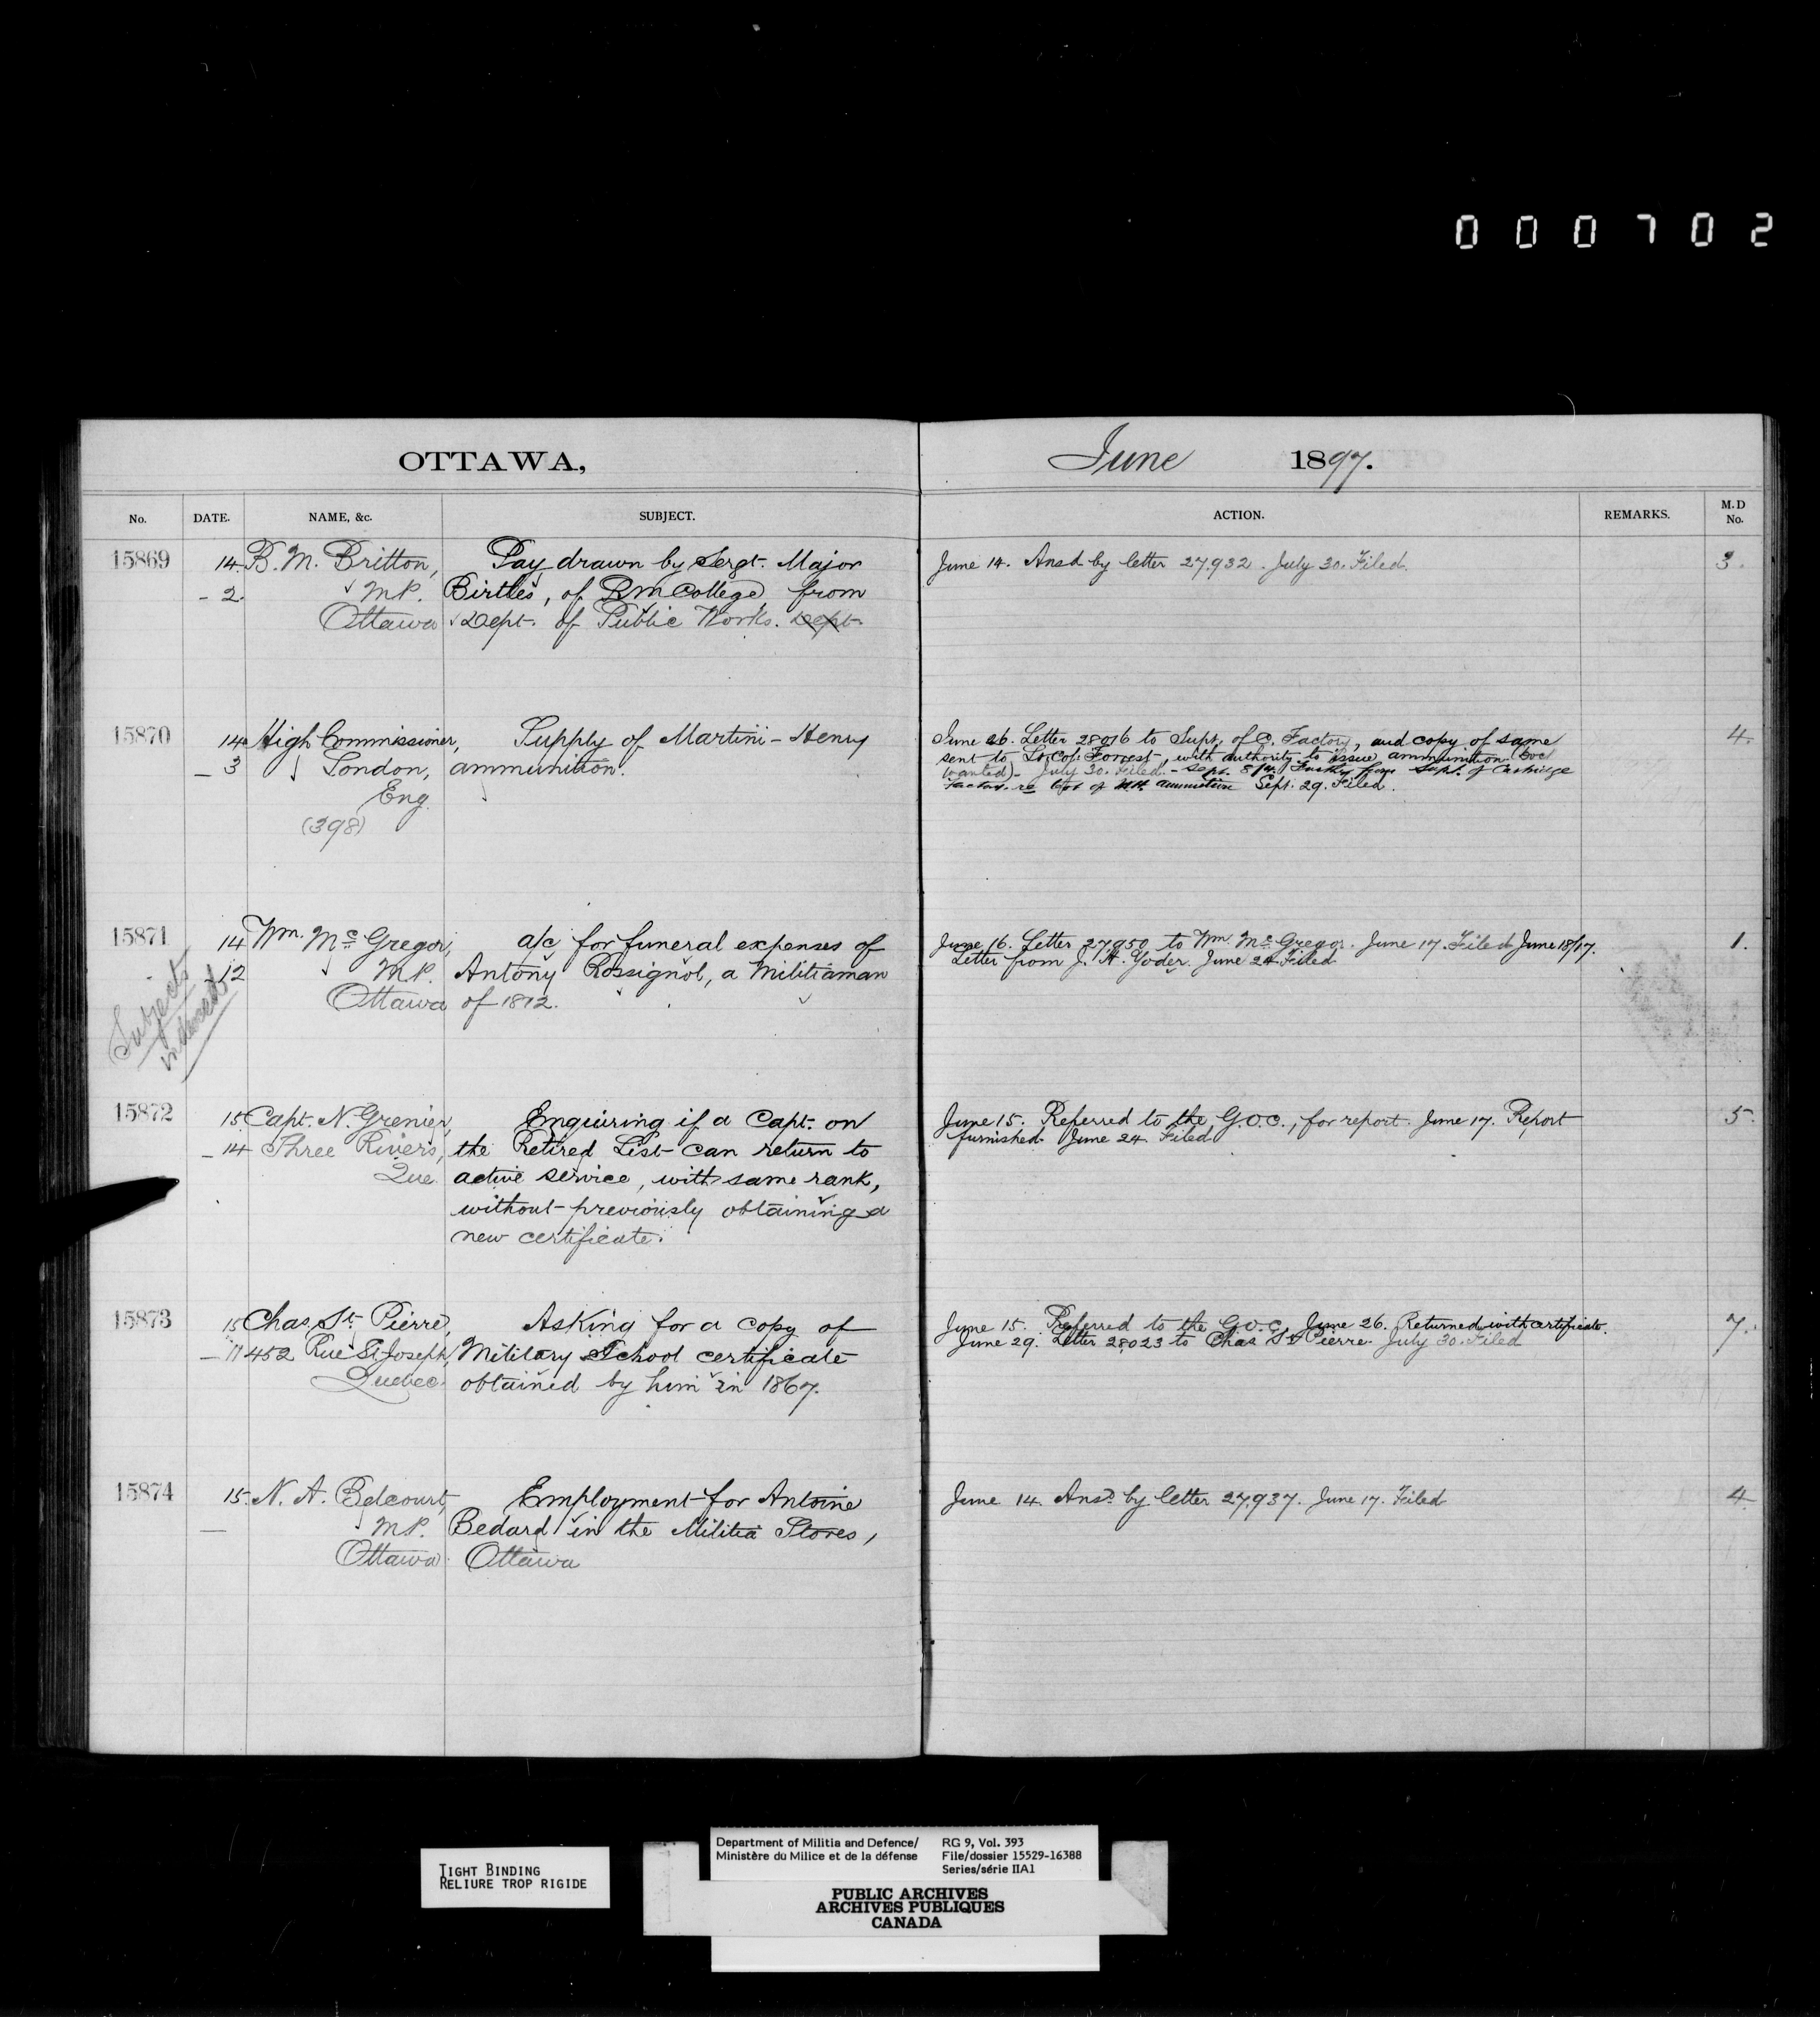 000702
OTTAWA,
June 1897.
No. DATE. NAME, &c. SUBJECT. ACTION. REMARKS. M.D No.
15869 14. B. M. Britton, Pay drawn by Sergt. Major June 14. Ansd by letter 27.932. July 30. Filed. 3.
- 2. M.P. Birtles, of R M College, from
Ottawa Dept. of Public Works. Dept.
15870 14 High Commissioner, Supply of Martini-Henry June 26. Letter 28016 to Supt. of C. Factory, and copy of same 4.
- 3 London, ammunition. sent to Lt Col. Forrest, with authority to issue ammunition
Eng. wanted). July 30. Filed. - Sept. Supt. of Cartridge
(398) Factory. re of M.H. ammunition Sept. 29. Filed.
15871 14 Wm. McGregor, a/c for funeral expenses of June 16. Letter 27950 to Wm. McGregor. June 17. Filed June 18/17. 1.
12 M.P. Antony Rossignol, a Militiaman Letter from J. H. Yoder. June 24 Filed
Ottawa of 1812.
Subjects
indexed
15872 15. Capt. N. Grenier, Enquiring if a Capt. on June 15. Referred to the G.O.C., for report. June 17. Report 5.
- 14 Three Rivers, the Retired List can return to furnished. June 24. Filed
Que. active service, with same rank,
without previously obtaining a
new certificate.
15873 15 Chas. St. Pierre, Asking for a copy of June 15. Referred to the G.O.C. June 26. Returned with certificate. 7.
- 11 452 Rue St Joseph, Military School certificate June 29. Letter 28023 to Chas St Pierre. July 30. Filed
Quebec. obtained by him in 1867.
15874 15. N. A. Belcourt, Employment for Antoine June 14. Ansd by letter 27,937. June 17. Filed 4.
M.P. Bedard in the Militia Stores,
Ottawa. Ottawa
TIGHT BINDING
RELIURE TROP RIGIDE
Department of Militia and Defence/ RG 9, Vol. 393
Ministère du Milice et de la défense File/dossier 15529-16388
Series/série IIA1
PUBLIC ARCHIVES
ARCHIVES PUBLIQUES
CANADA